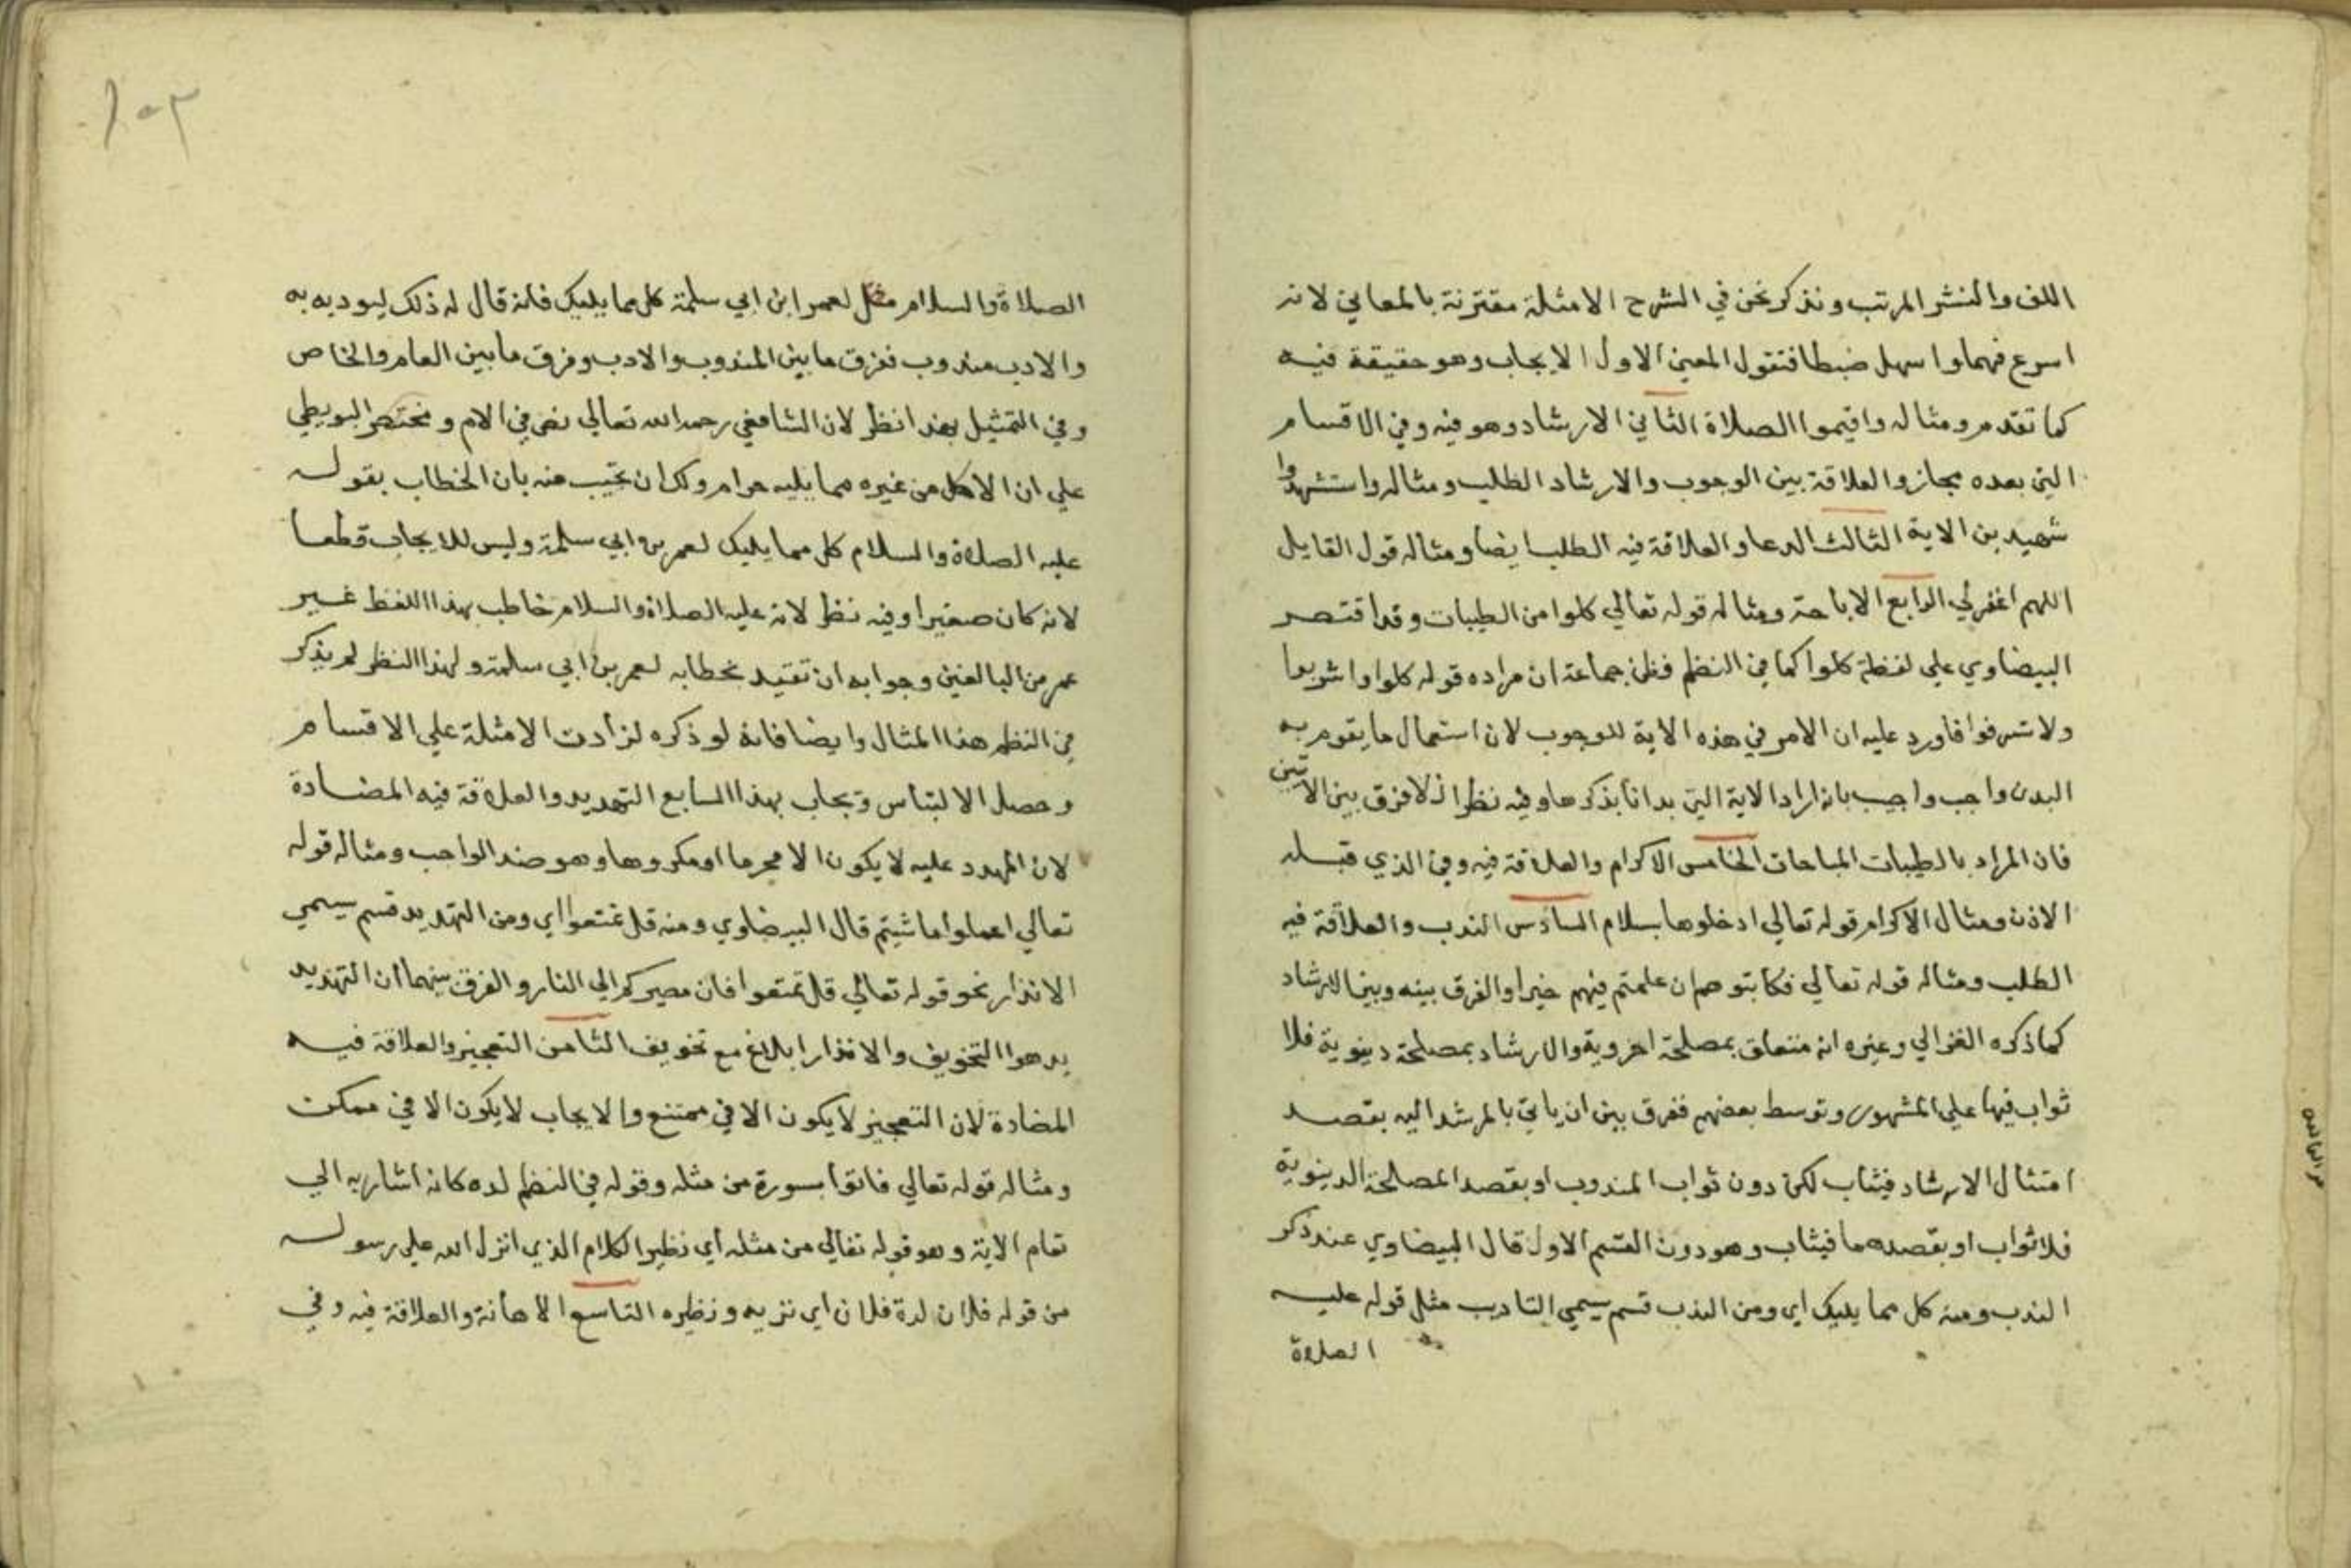 اللف والنشر المرتب ونذكر نحن في الشرح الامثلة مقترنة بالمعاني لانه
اسرع فهما واسهل ضبطا فنقول المعني الاول الايجاب وهو حقيقة فيه
كما تقدم ومثاله واقيموا الصلاة الثاني الارشاد وهو فيه وفي الاقسام
التي بعده مجاز والعلاقة بين الوجوب والارشاد الطلب ومثاله واستشهدوا
شهيدين الاية الثالث الدعا والعلاقة فيه الطلب ايضا ومثاله قول القايل
اللهم اغفر لي الرابع الاباحة ومثاله قوله تعالي كلوا من الطيبات وقد اقتصر
البيضاوي علي لفظة كلوا كما في النظم فظن جماعة ان مراده قوله كلوا واشربوا
ولا تسرفوا فاورد عليه ان الامر في هذه الاية للوجوب لان استعمال ما يقوم به
البدن واجب واجيب بانه اراد الاية التي بدانا بذكرها وفيه نظر اذ لا فرق بين الايتين
فان المراد بالطيبات المباحات الخامس الاكرام والعلاقة فيه وفي الذي قبله
الاذن ومثال الاكرام قوله تعالي ادخلوها بسلام السادس الندب والعلاقة فيه
الطلب ومثاله قوله تعالي فكاتبوهم ان علمتم فيهم خيرا والفرق بينه وبين الارشاد
كما ذكره الغزالي وغيره انه متعلق بمصلحة اخروية والارشاد بمصلحة دينوية فلا
ثواب فيها علي المشهور وتوسط بعضهم ففرق بين ان ياتي بالمرشد اليه بقصد
امتثال الارشاد فيثاب لكن دون ثواب المندوب او بقصد المصلحة الدينوية
فلا ثواب او بقصدهما فيثاب وهو دون القسم الاول قال البيضاوي عند ذكر
الندب ومنه كل مما يليك اي ومن الندب قسم يسمي التاديب مثل قوله عليه
الصلاة
١٠٣
الصلاة والسلام مثل لعمر ابن ابي سلمة كل مما يليك فانه قال له ذلك ليوديه به
والادب مندوب ففرق ما بين المندوب والادب وفرق ما بين العام والخاص
وفي التمثيل بهذا نظر لان الشافعي رحمه الله تعالي نص في الام ومختصر البويطي
علي ان الاكل من غيره مما يليه حرام ولك ان تجيب عنه بان الخطاب بقوله
عليه الصلاة والسلام كل مما يليك لعمر بن ابي سلمة وليس للايجاب قطعا
لانه كان صغيرا وفيه نظر لانه عليه الصلاة والسلام خاطب بهذا اللفظ غير
عمر من البالغين وجوابه ان تقيد بخطابه لعمر بن ابي سلمة ولهذا النظر لم يذكر
في النظم هذا المثال وايضا فانه لو ذكره لزادت الامثلة علي الاقسام
وحصل الالتباس ويجاب بهذا السابع التهديد والعلاقة فيه المضادة
لان المهدد عليه لا يكون الا محرما او مكروها وهو ضد الواجب ومثاله قوله
تعالي اعملوا ما شيتم قال البيضاوي ومنه قل تمتعوا اي ومن التهديد قسم يسمي
الانذار نحو قوله تعالي قل تمتعوا فان مصيركم الي النار والفرق بينهما ان التهديد
يد هو التخويف والانذار ابلاغ مع تخويف الثامن التعجيز والعلاقة فيه
المضادة لان التعجيز لا يكون الا في ممتنع والايجاب لا يكون الا في ممكن
ومثاله قوله تعالي فاتوا بسورة من مثله وقوله في النظم لده كانه اشار به الي
تمام الاية وهو قوله تعالي من مثله اي نظير الكلام الذي انزل الله علي رسوله
من قوله فلان لدة فلان اي تربه ونظيره التاسع الاهانة والعلاقة فيه وفي